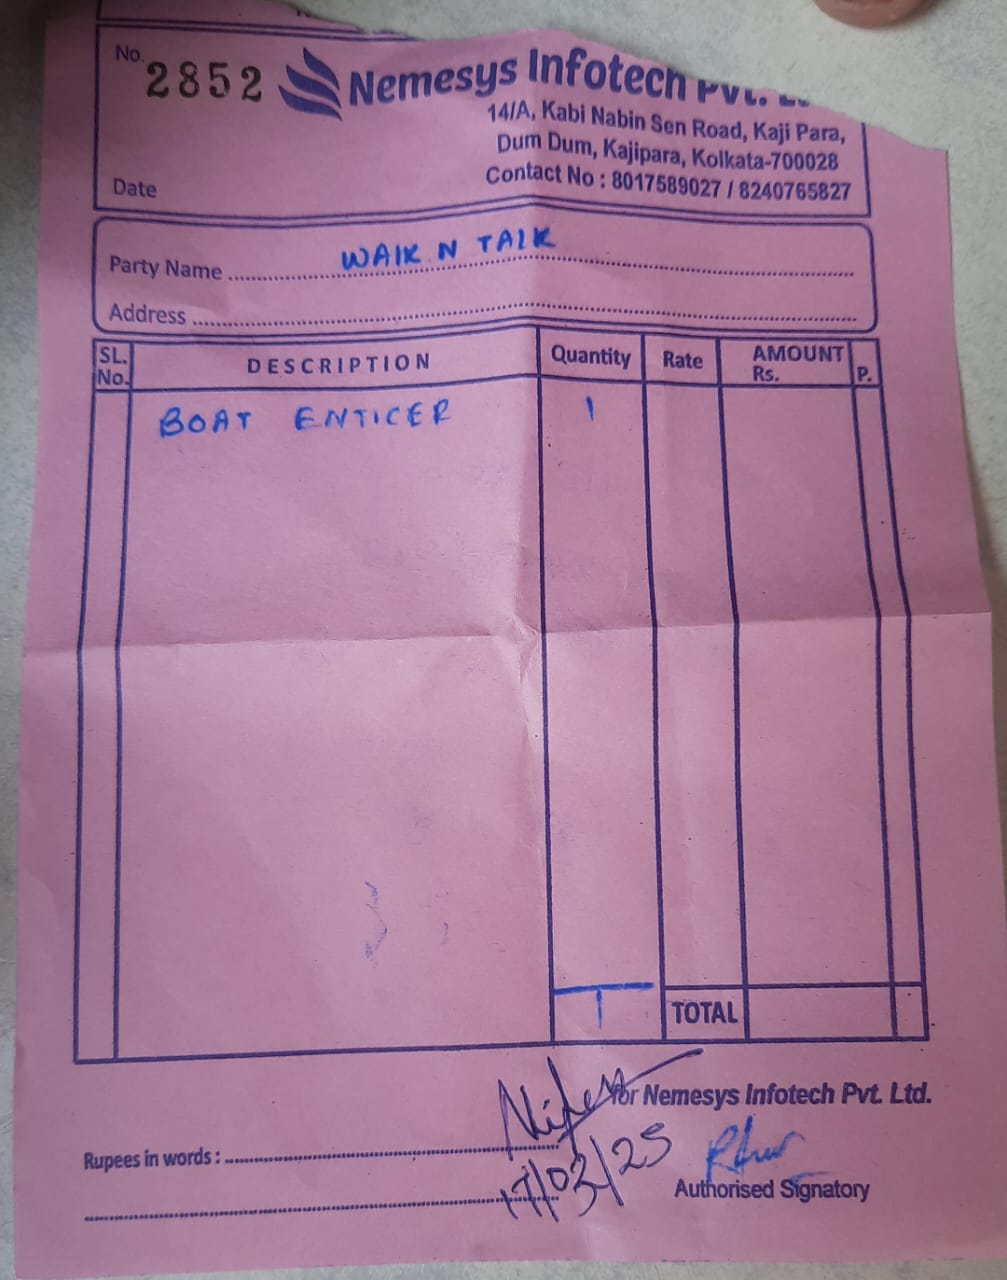 No. 2852
Nemesys Infotech Pvt.
14/A, Kabi Nabin Sen Road, Kaji Para,
Dum Dum, Kajipara, Kolkata-700028
Contact No : 8017589027 / 8240765827
Date
Party Name WALK N TALK
Address
SL. No. DESCRIPTION Quantity Rate AMOUNT Rs. P.
BOAT ENTICER 1
1 TOTAL
for Nemesys Infotech Pvt. Ltd.
Rupees in words :
17/03/25
Authorised Signatory